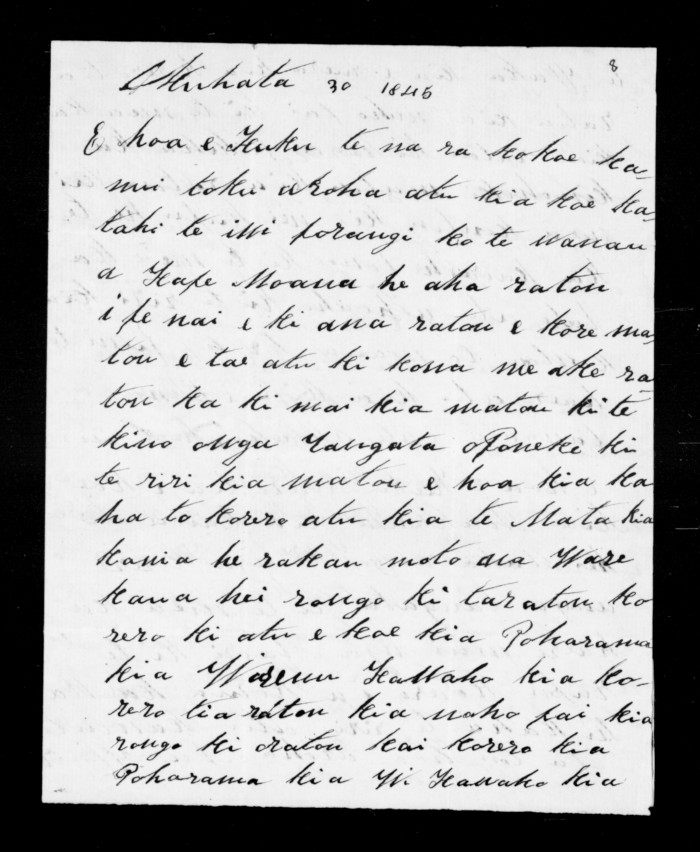 8
Akuhata 30 1845
E hoa e Kuku te na ra kokoe ka-
nui toku aroha atu kia koe ka-
tahi te iwi porangi ko te wanau
a Kape Moana he aha ratou
i pe nai e ki ana ratou e kore ma-
tou e tae atu ki kona me ake ra-
tou ka ki mai kia matou ki te
kino onga Tangata o Poneke ki
te riri kia matou e hoa kia ka
ha to korero atu kia te Mata kia
kania he rakau moto na Ware
kaua hei rongo ki taratou ko
rero ki atu e koe kia Poharama
kia Waremu Kawaho kia ko-
rero tia ratou kia noho pai kia
rongo ki oratou kai korero kia
Poharama kia Wi Kawaho kia